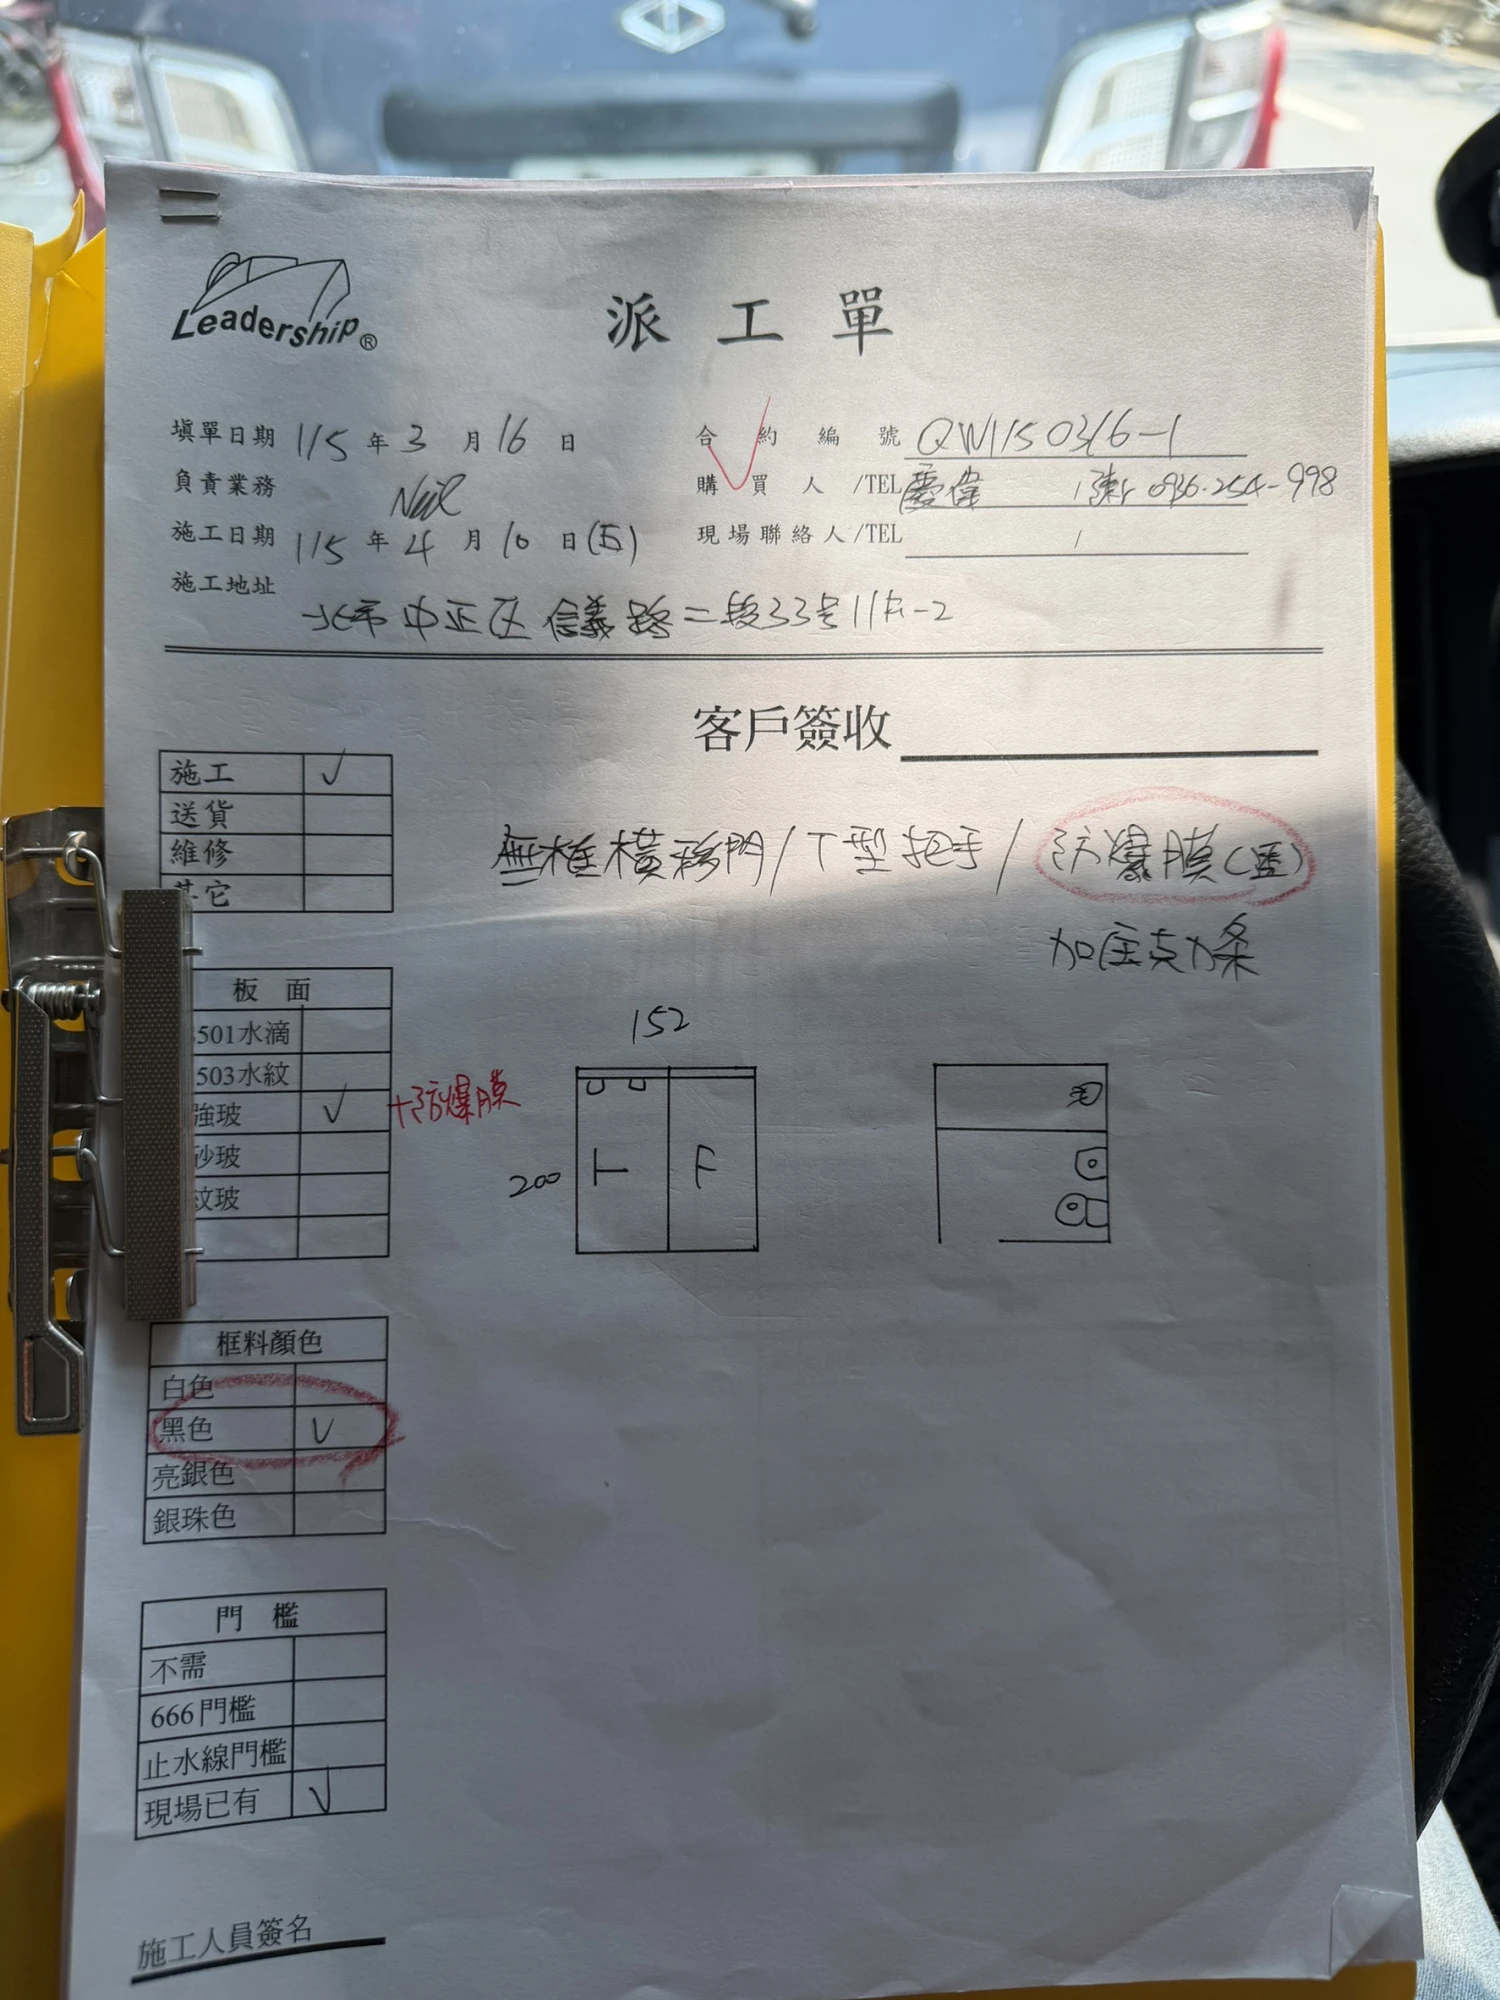 Leadership®
派工單
填單日期 115 年 3 月 16 日
合約編號 QW1150316-1
負責業務 Neil
購買人/TEL 慶偉 / 陳r 0936-254-998
施工日期 115 年 4 月 10 日(五)
現場聯絡人/TEL /
施工地址 北市中正區信義路二段33号11F-2
客戶簽收
施工 ✓
送貨
維修
其它
無框橫移門/T型把手/防爆膜(透)
加壓克力條
板面
501水滴
503水紋
強玻 ✓ +防爆膜
砂玻
紋玻
152
200
F
框料顏色
白色
黑色 ✓
亮銀色
銀珠色
門檻
不需
666門檻
止水線門檻
現場已有 ✓
施工人員簽名